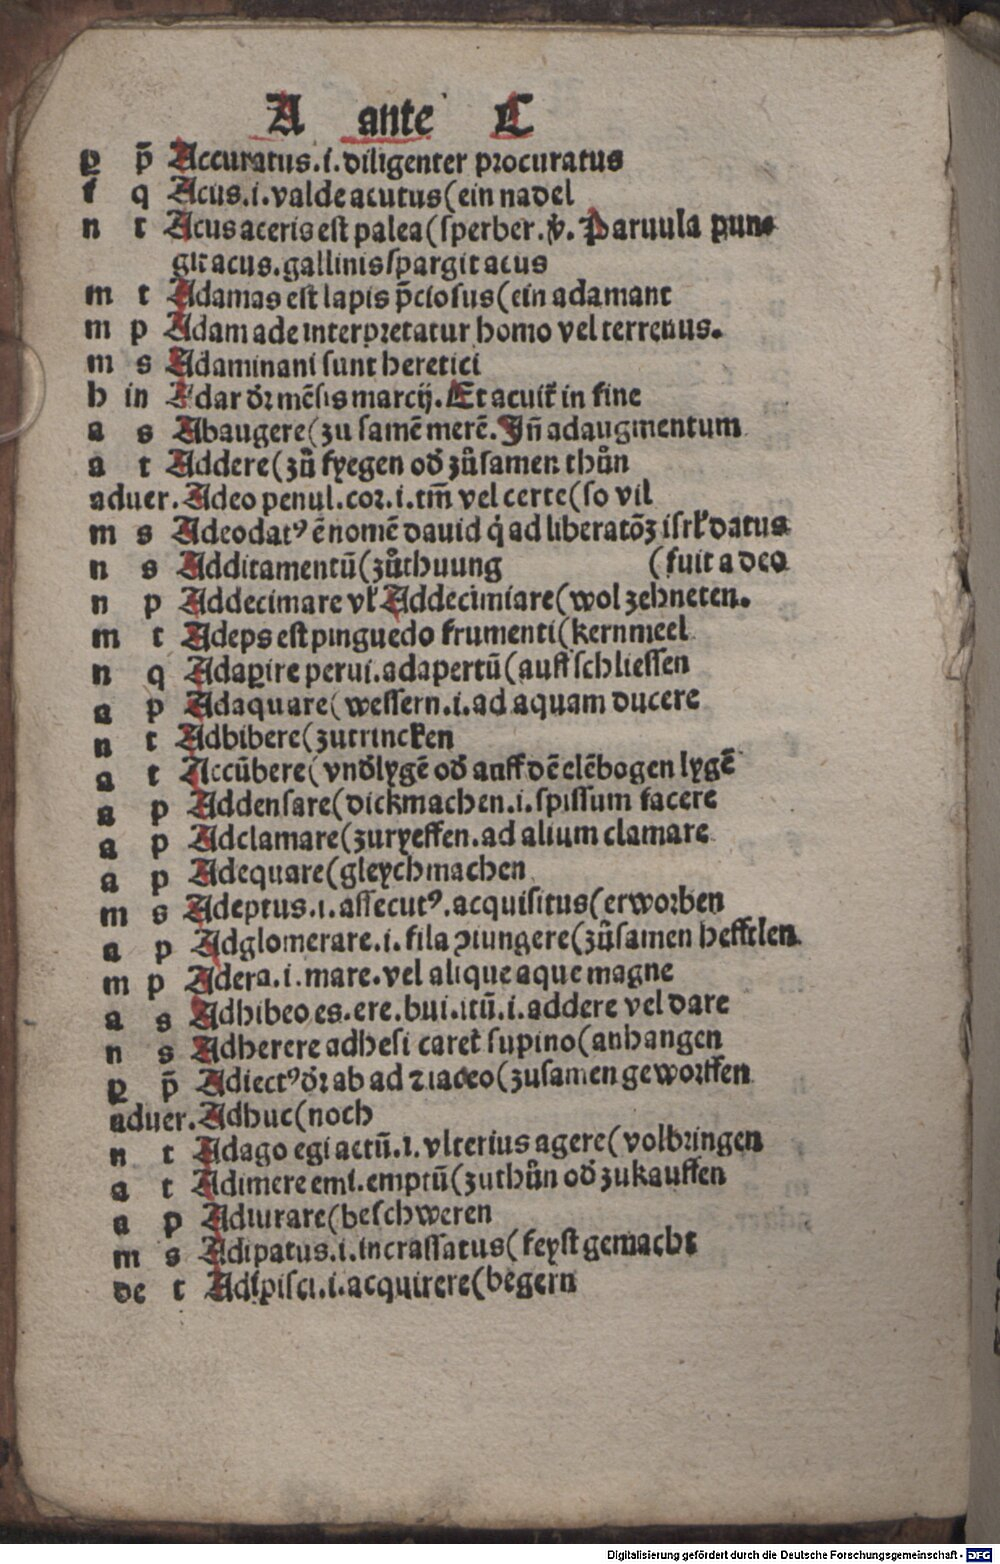 A ante C
ꝑ p̄ Accuratus.i.diligenter procuratus
f q Acus.i.valde acutus(ein nadel
n t Acus aceris est palea(sperber.v̇. Paruula pun⸗
git acus.gallinis spargit acus
m t Adamas est lapis p̄ciosus(ein adamant
m p Adam ade interpretatur homo vel terrenus.
m s Adaminani sunt heretici
h in Adar dꝛ mēsis marcij. Et acuit᷑ in fine
a s Abaugere(zu samē merē. Jn̄ adaugmentum
a t Addere(zů fyegen od̓ zůsamen thůn
aduer. Adeo penul.coꝛ.i.tm̄ vel certe(so vil
m s Adeodatꝰ ē nomē dauid q̇ ad liberatōꝫ isrl̓ datus
n s Additamentū(zůthuung (fuit a deo
n p Addecimare vl̓ Addecimiare(wol zehneten.
m t Adeps est pinguedo frumenti(kernmeel
n q Adaꝑire perui.adapertū(auff schliessen
a p Adaquare(wessern.i.ad aquam ducere
n t Adbibere(zutrincken
a t Accūbere(vnd̓lygē od̓ auff dē elēbogen lygē
a p Addensare(dickmachen.i.spissum facere
a p Adclamare(zuryeffen.ad alium clamare
a p Adequare(gleychmachen
m s Adeptus.i.assecutꝰ.acquisitus(erwoꝛben
a p Adglomerare.i.fila ꝯiungere(zůsamen hefftlen
m p Adera.i.mare.vel alique aque magne
a s Adhibeo es.ere.bui.itū.i.addere vel dare
n s Adherere adhesi caret̓ supino(anhangen
ꝑ p̄ Adiectꝰ dꝛ ab ad ⁊ iaceo(zusamen gewoꝛffen
aduer. Adhuc(noch
n t Adago egi actū.i.vlterius agere(volbringen
a t Adimere emi.emptū(zuthůn od̓ zukauffen
a p Adiurare(beschweren
m s Adipatus.i.incrassatus(feyst gemacht
de t Adipisci.i.acquirere(begern
Digitalisierung gefördert durch die Deutsche Forschungsgemeinschaft - DFG